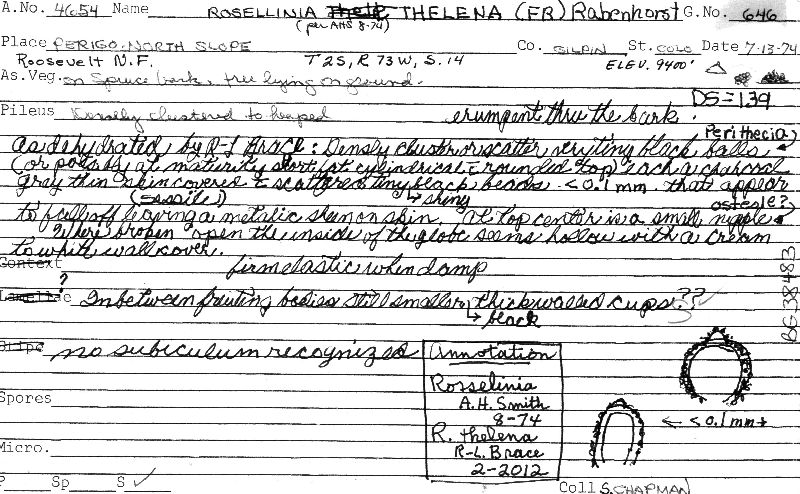 A.No. 4654 Name ROSELLINIA THELENA (FR) Rabenhorst G.No. 646
(per AHS 8-74)
Place PERIGO-NORTH SLOPE Co. GILPIN St. COLO Date 7-13-74
Roosevelt N.F. T2S, R 73W, S.14 ELEV. 9400'
As.Veg. on Spruce bark, tree lying on ground.
DS=139
Pileus Densely clustered to heaped erumpent thru the bark.
Perithecia)
As dehydrated, by R-L Brace: Densly cluster or scatter erupting black balls
(or possibly at maturity short fat cylindrical rounded top) each a charcoal
gray thin skin covered scattered tiny black beads <0.1mm that appear
(sessile) shiny osteole?)
to fall off leaving a metalic sheen on skin. At top center is a small nipple
Where broken open the inside of the globe seems hollow with a cream
to white wall cover.
Context firm elastic when damp
?
Lamellae Inbetween fruiting bodies still smaller, thick walled cups??
black
Stipe no subiculum recognized
Annotation
Rosselinia
A.H. Smith
8-74
R. thelena
R-L. Brace
2-2012
BG38483
<0.1mm
Spores
Micro.
P Sp S ✓
Coll S. CHAPMAN